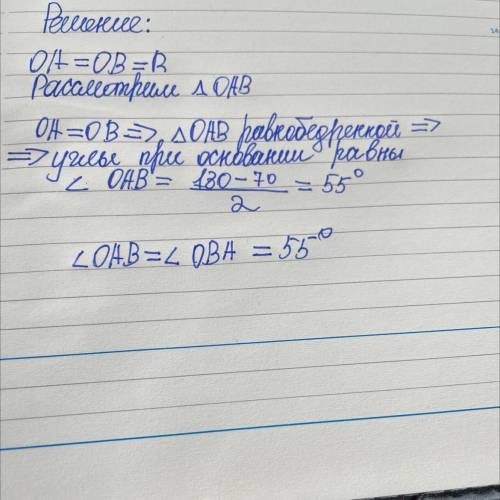 Решение:
OA = OB = R
Рассмотрим △ OAB
OA = OB => △ OAB равнобедренной =>
=> углы при основании равны
∠ OAB = (180 - 70)/2 = 55°
∠OAB = ∠ OBA = 55°